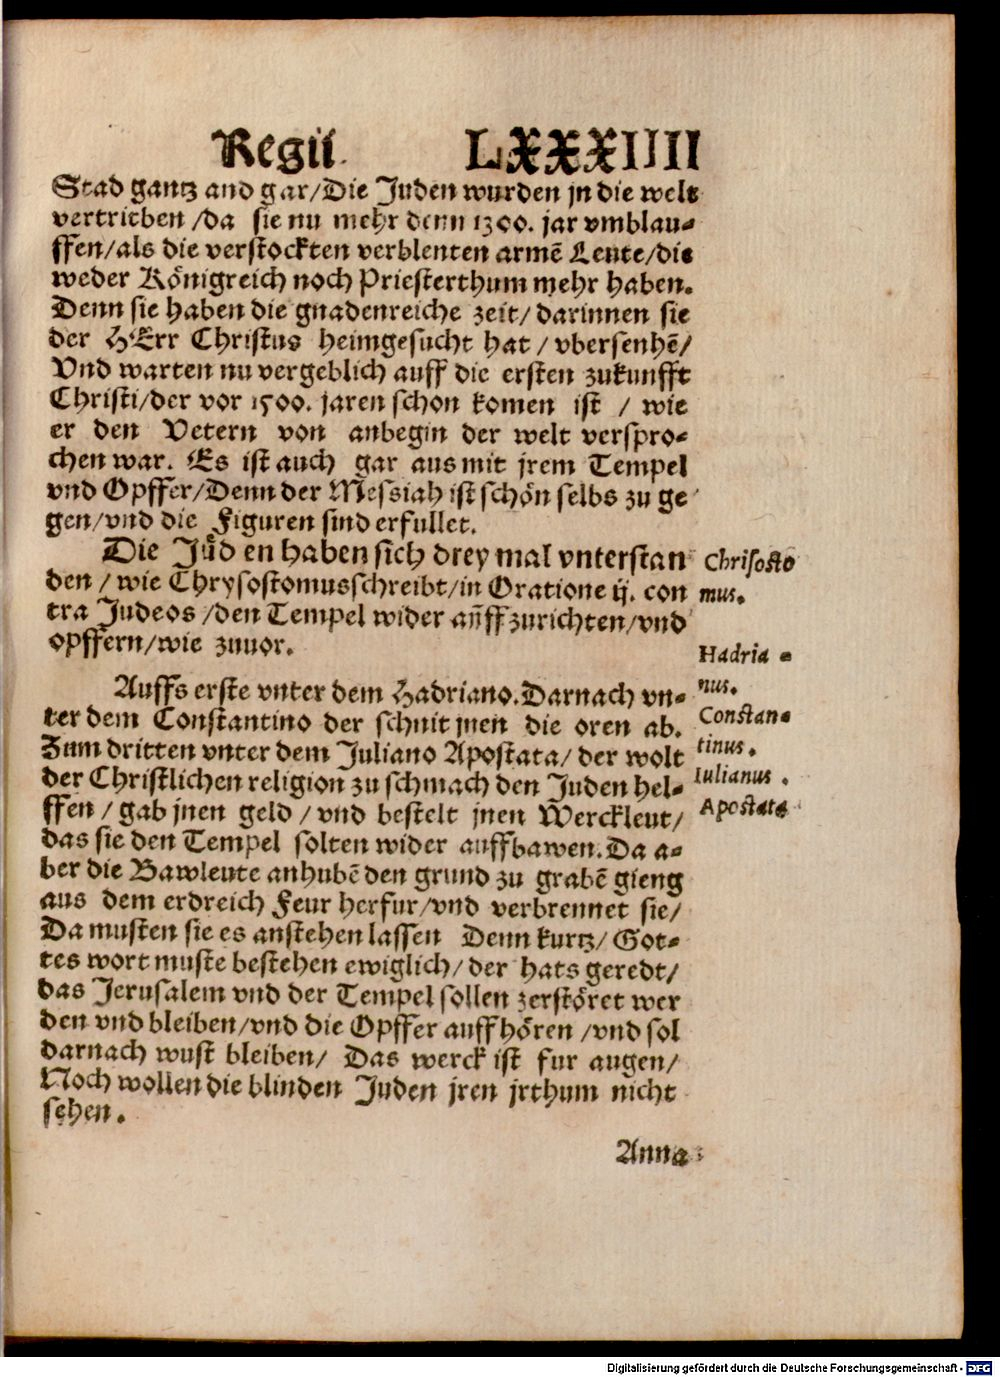 Regii. LXXXIIII
Stad gantz and gar/Die Juden wurden jn die welt
vertrieben/da sie nu mehr denn 1300. jar vmblau-
ffen/als die verstockten verblenten armē Leute/die
weder Königreich noch Priesterthum mehr haben.
Denn sie haben die gnadenreiche zeit/ darinnen sie
der HErr Christus heimgesucht hat / vbersenhē/
Vnd warten nu vergeblich auff die ersten zukunfft
Christi/der vor 1500. jaren schon komen ist / wie
er den Vetern von anbegin der welt verspro-
chen war. Es ist auch gar aus mit jrem Tempel
vnd Opffer/Denn der Messiah ist schön selbs zu ge
gen/vnd die Figuren sind erfullet.
Die Jůd en haben sich drey mal vnterstan
den / wie Chrysostomusschreibt/in Oratione ij. con
tra Judeos /den Tempel wider auff zurichten/vnd
opffern/wie zuuor.
Chrisosto
mus.
Auffs erste vnter dem Hadriano. Darnach vn-
ter dem Constantino der schnit jnen die oren ab.
Zum dritten vnter dem Juliano Apostata/ der wolt
der Christlichen religion zu schmach den Juden hel-
ffen / gab jnen geld / vnd bestelt jnen Werckleut/
das sie den Tempel solten wider auffbawen. Da a-
ber die Bawleute anhubē den grund zu grabē gieng
aus dem erdreich Feur herfur/vnd verbrennet sie/
Da musten sie es anstehen lassen Denn kurtz/ Got-
tes wort muste bestehen ewiglich/ der hats geredt/
das Jerusalem vnd der Tempel sollen zerstöret wer
den vnd bleiben/vnd die Opffer auffhören /vnd sol
darnach wust bleiben/ Das werck ist fur augen/
Noch wollen die blinden Juden jren jrthum nicht
sehen.
Hadria-
nus.
Constan-
tinus.
Iulianus.
Apostata
Anna
Digitalisierung gefördert durch die Deutsche Forschungsgemeinschaft - DFG